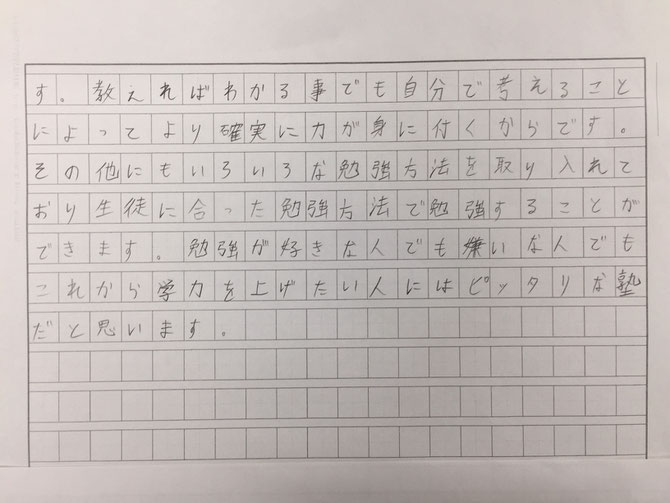 す。教えればわかる事でも自分で考えること
によってより確実に力が身に付くからです。
その他にもいろいろな勉強方法を取り入れて
おり生徒に合った勉強方法で勉強することが
できます。勉強が好きな人でも嫌いな人でも
これから学力を上げたい人にはピッタリな塾
だと思います。